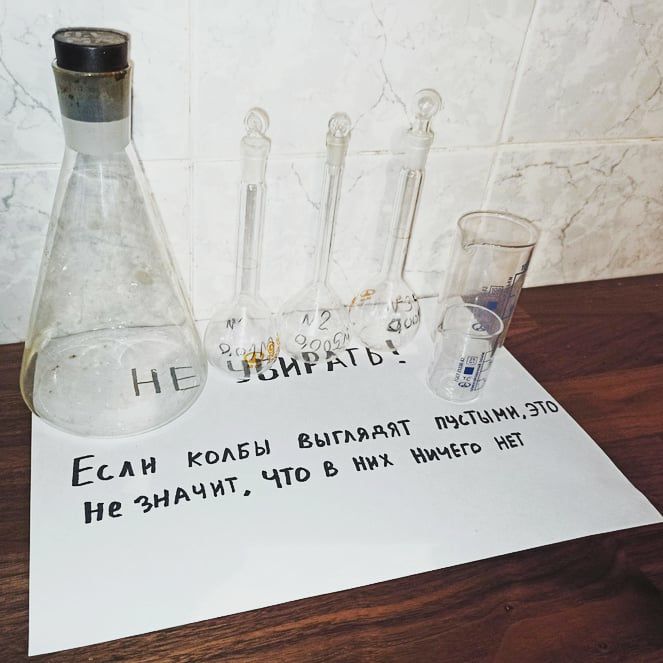 НЕ УБИРАТЬ!
Если колбы выглядят пустыми, это
не значит, что в них ничего нет
№1
0.01М
№2
0.005М
№3